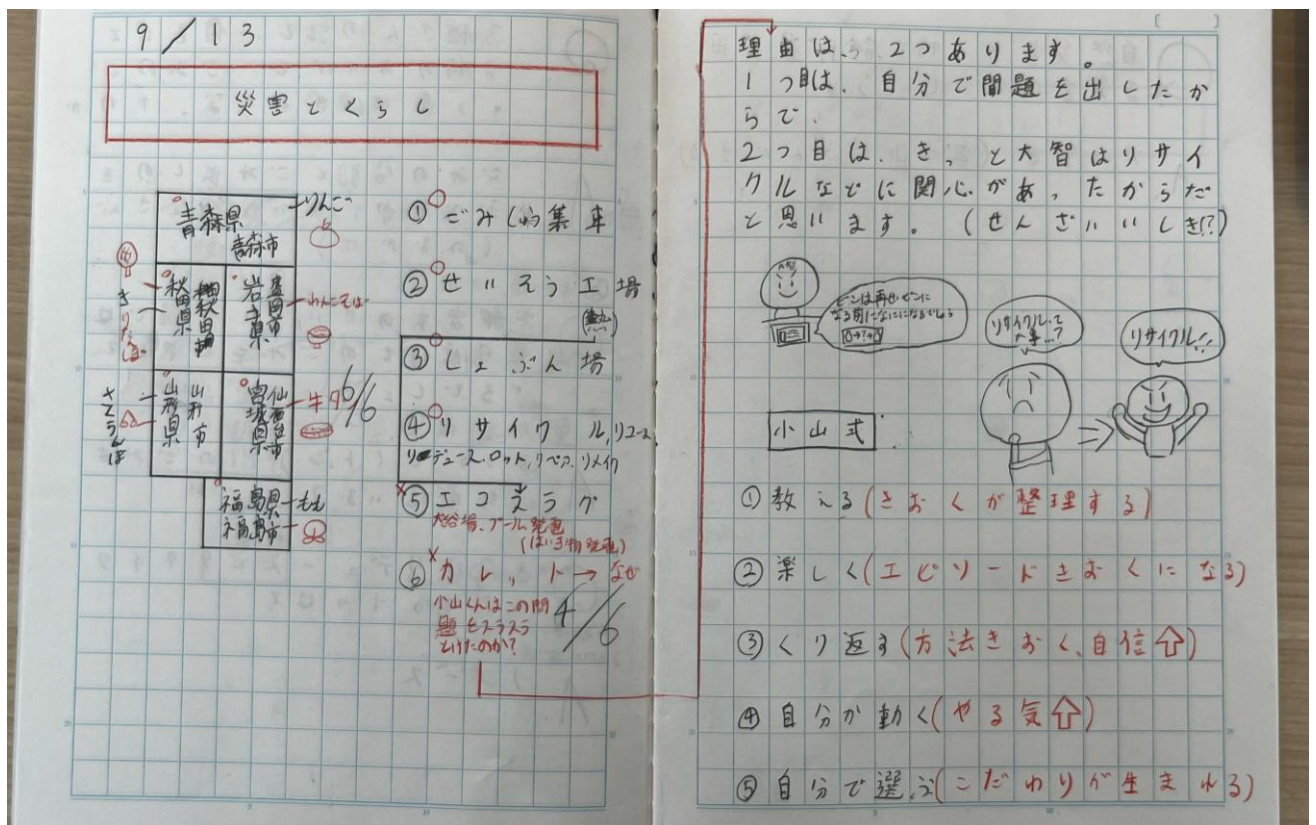 9/13
災害とくらし
りんご
青森県
青森市
秋田県
秋田市
きりたんぽ
岩手県
盛岡市
わんこそば
山形県
山形市
さくらんぼ
宮城県
仙台市
牛タン
福島県
福島市
もも
6/6
①ごみしゅう集車
②せいそう工場
(熱)
③しょぶん場
④リサイクル,リユース
リデュース、ロット、リペア、リメイク
⑤エコスラグ
プール、発電
(はいき物発電)
⑥カレット→なぜ
小山くんはこの問
題をスラスラ
とけたのか?
4/6
理由は、2つあります。
1つ目は、自分で問題を出したか
らで、
2つ目は、きっと大智はリサイ
クルなどに関心があったからだ
と思います。(せんざいいしき!?)
ビンは再せいビンに
なる前になにになるでしょう
□→?→□
リサイクルって
大事…?
リサイクル!!
小山式
①教える(きおくが整理する)
②楽しく(エピソードきおくになる)
③くり返す(方法きおく、自信⇧)
④自分が動く(やる気⇧)
⑤自分で選ぶ(こだわりが生まれる)